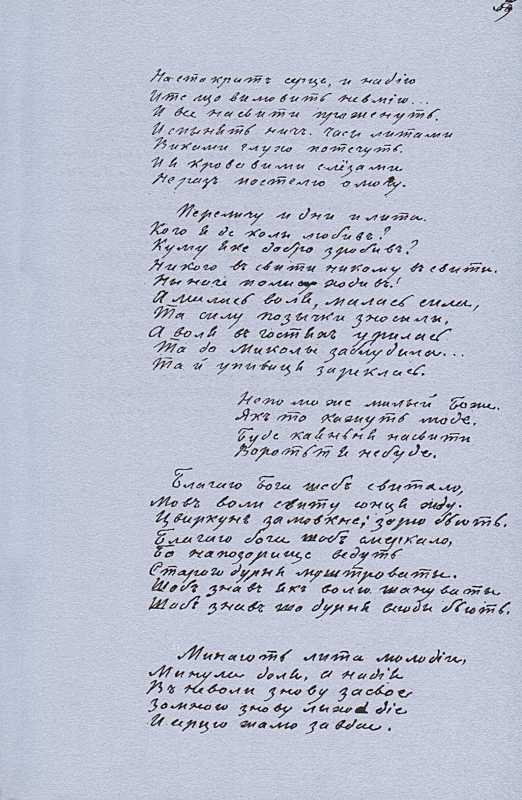 Настократъ серце, и надію
Ите що вимовить невмію...
И все насвити проженуть.
И спынять ничъ. Часы литами
Виками глухо потечуть.
И я кровавими слёзами
Не разъ постелю омочу.
Переличу и дни и лита.
Кого я де коли любивъ?
Кому яке добро зробивъ?
Никого въ свити никому въ свити.
Ныначе по лису ходивъ!
А малась воля, малась сила,
Та силу позычки зносылы,
А воля въ гостяхъ упилась
Та до Миколы заблудила...
Та й упивця зареклась.
Непоможе милый Боже.
Якъ то кажуть люде.
Буде каяньня насвити
Вороття небуде.
Благаю Бога щобъ свитало,
Мовъ воли свиту сонця жду.
Цвиркунъ замовкне; зорю бьють.
Благаю бога щобъ смеркало,
Бо напозорище ведуть
Старого дурня моштроваты.
Щобъ знавъ якъ волю шануваты
Щобъ знавъ що дурня всюды бьють.
Минають лита молодіи,
Минула доля, а надія
Въ неволи знову засвое
Зомною знову лихо діе
И серцю жалю завдае.